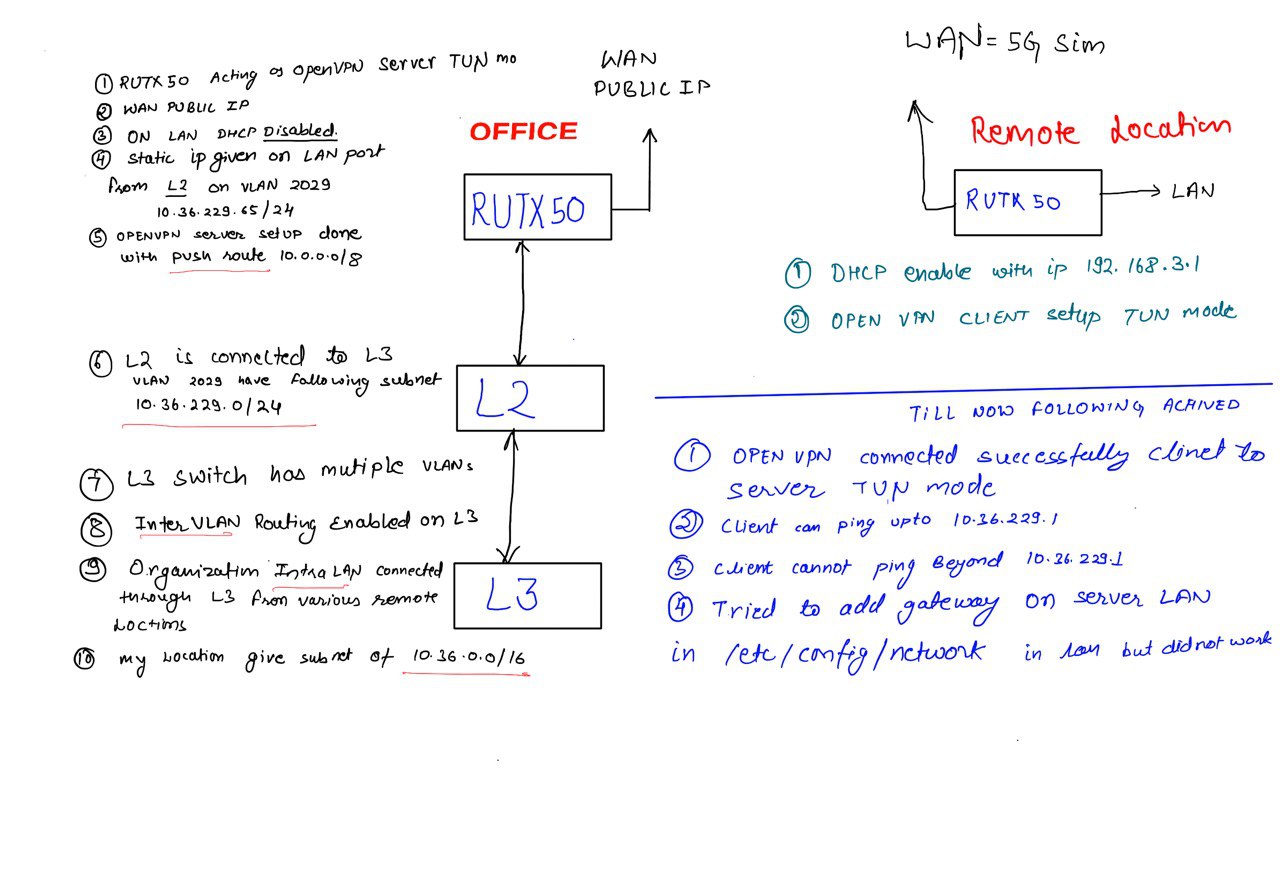 ① RUTX50 Acting as OpenVPN Server TUN mo
② WAN PUBLIC IP
③ ON LAN DHCP Disabled.
④ static ip given on LAN port
from L2 on VLAN 2029
10.36.229.65/24
⑤ OPENVPN server setup done
with push route 10.0.0.0/8
⑥ L2 is connected to L3
VLAN 2029 have following subnet
10.36.229.0/24
⑦ L3 switch has mutiple VLANs
⑧ Inter VLAN Routing Enabled on L3
⑨ Organization Intra LAN connected
through L3 from various remote
Loctims
⑩ my Location give subnet of 10.36.0.0/16
WAN
PUBLIC IP
OFFICE
RUTX50
L2
L3
WAN = 5G Sim
Remote Location
RUTX 50
LAN
① DHCP enable with ip 192.168.3.1
② OPEN VPN CLIENT setup TUN mode
TILL NOW FOLLOWING ACHIVED
① OPEN VPN connected successfully clinet to
server TUN mode
② Client can ping upto 10.36.229.1
③ client cannot ping Beyond 10.36.229.1
④ Tried to add gateway on server LAN
in /etc/config/network in lan but did not work